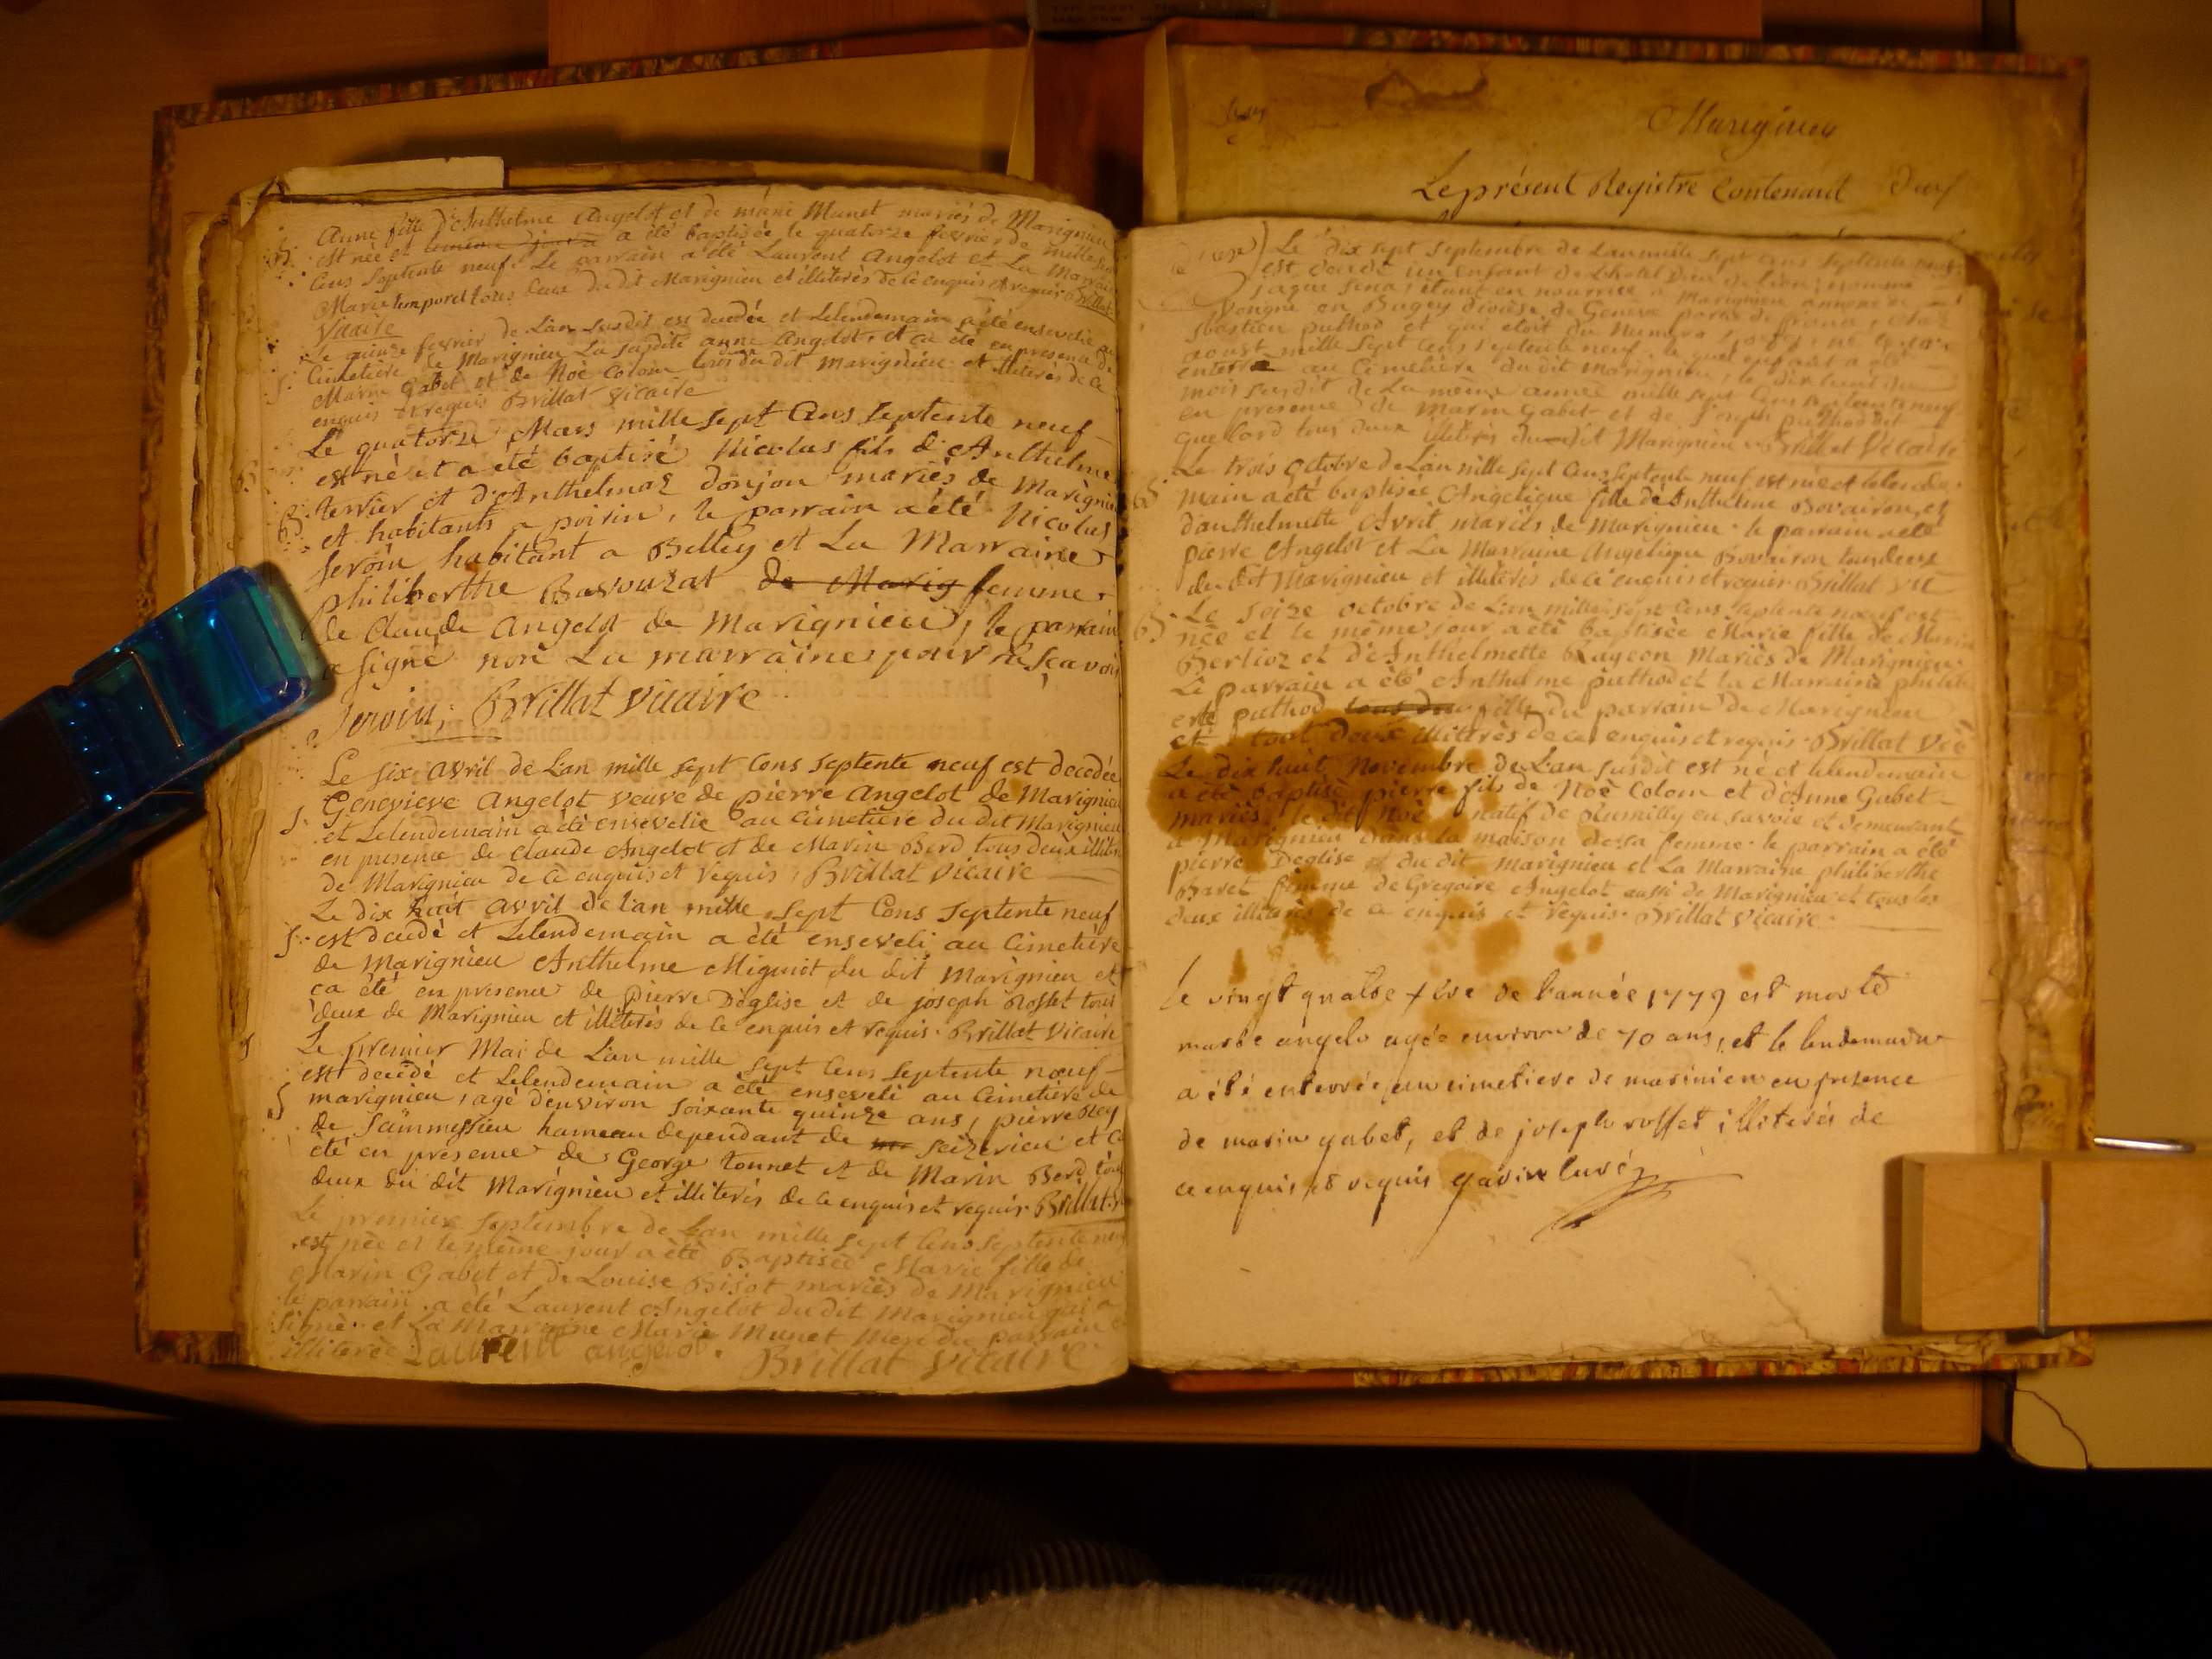 Anne fille d'Anthelme Angelot et de marie Munet mariés de Marignieu
est née et a été baptisée le quatorze fevrier de mille sept
Cens Septente neuf. Le parrain a été Laurent Angelot et La Marraine
Marie tous deux du dit Marignieu et illiterés de ce enquis et requis Brillat
Vicaire
Le quinze fevrier de L'an susdit est decedée et Lelendemain a été ensevelie au
Cimetiere de Marignieu La susdite anne Angelot, et ça été en presence de
Marin Gabet et de Noë Colom tous du dit Marignieu et illiterés de ce
enquis et requis Brillat Vicaire
Le quatorze Mars mille sept Cens Septente neuf
est né et a été baptisé Nicolas fils d'Anthelme
terrier et d'Anthelmaz donjon mariés de Marignieu
et habitants a poirin, le parrain a été Nicolas
Jeroin habitant a Belley et La Marraine
philiberthe Bavouzat de Marig femme
de Claude Angelot de Marignieu, le parrain
a signé non La marraine pour ne sçavoir
Jeroin; Brillat Vicaire
Le six avril de L'an mille sept Cens septente neuf est decedée
S. Genevieve Angelot veuve de pierre Angelot de Marignieu
et Lelendemain a été ensevelie au cimetiere du dit Marignieu
en presence de Claude Angelot et de Marin Berd tous deux illiterés
de Marignieu de ce enquis et requis, Brillat Vicaire
Le dix huit avril de L'an mille sept Cens Septente neuf
S. est decedé et Lelendemain a été enseveli au Cimetière
de Marignieu Anthelme Migniot du dit Marignieu et
ça été en presence de Pierre Deglise et de joseph Rosset tous
deux de Marignieu et illiterés de ce enquis et requis. Brillat Vicaire
Le premier Mai de L'an mille sept Cens Septente neuf
est decédé et Lelendemain a été enseveli au Cimetiere de
S marignieu, agé d'environ soixante quinze ans, pierre Rey
de hameau dependant de seizerieu et ça
été en presence de George tonnet et de Marin Berd tous
deux du dit Marignieu et illiterés de ce enquis et requis Brillat V.
Le premier Septembre de L'an mille sept Cens septente neuf
est née et le même jour a été Baptisée Marie fille de
Marin Gabet et de Louise Bisot mariés de Marignieu
le parrain a été Laurent Angelot du dit Marignieu qui a
signé et La Marraine Marie Munet Mere du parrain
illiterée Laurent angelot. Brillat Vicaire
Marignieu
Le présent Registre Contenant Deux
Le dix sept Septembre de L'an mille sept cens septente neuf
est decedé un enfant de L'hotel Dieu de Lion, nommé
étant en nourrice a Marignieu annexe de
Vongne en Bugey diocèse de Geneve partie de france, chez
Sbastien puthod et qui etoit du Numero né le
aoust mille sept cens septente neuf. le quel enfant a été
enterré au Cimetière du dit marignieu, le dix huit du
mois susdit de la même année mille sept Cens septente neuf
en presence de Marin Gabet et de Joseph puthod dit
tous deux illiterés du dit Marignieu. Brillat Vicaire
Le trois Octobre de L'an mille sept Cens septente neuf est née et lelende-
main a été baptisée Angelique fille de Anthelme Bovairon et
d'anthelmette Avril mariés de Marignieu. le parrain a été
pierre Angelot et La Marraine Angelique Bovairon tous deux
du dit Marignieu et illiterés de ce enquis et requis. Brillat Vic
Le Seize octobre de L'an mille sept Cens Septente neuf est
née et le même jour a été baptisée Marie fille de Marin
Berlioz et d'Anthelmette Rageon Mariés de Marignieu.
Le parrain a été Anthelme puthod et la Marraine philib
erte puthod tous deu fille du parrain de Marignieu
et tout deux illitérés de ce enquis et requis. Brillat Vic
Le dix huit Novembre de L'an susdit est né et lelendemain
a été baptisé pierre fils de Noë Colom et d'Anne Gabet
mariés, le dit Noë natif de Rumilly en savoie et demeurant
a Marignieu dans la maison de sa femme. le parrain a été
pierre Deglise du dit marignieu et La Marraine philiberthe
Baret femme de Gregoire Angelot aussi de Marignieu et tous les
deux illiterés de ce enquis et requis. Brillat Vicaire
Le vingt quatre xbre de l'année 1779 est morte
marie angelo agée environ de 70 ans, et le lendemain
a été enterrée au cimetiere de marinieu en presence
de marin gabet, et de joseph rosset illiterés de
ce enquis et requis gavin curé